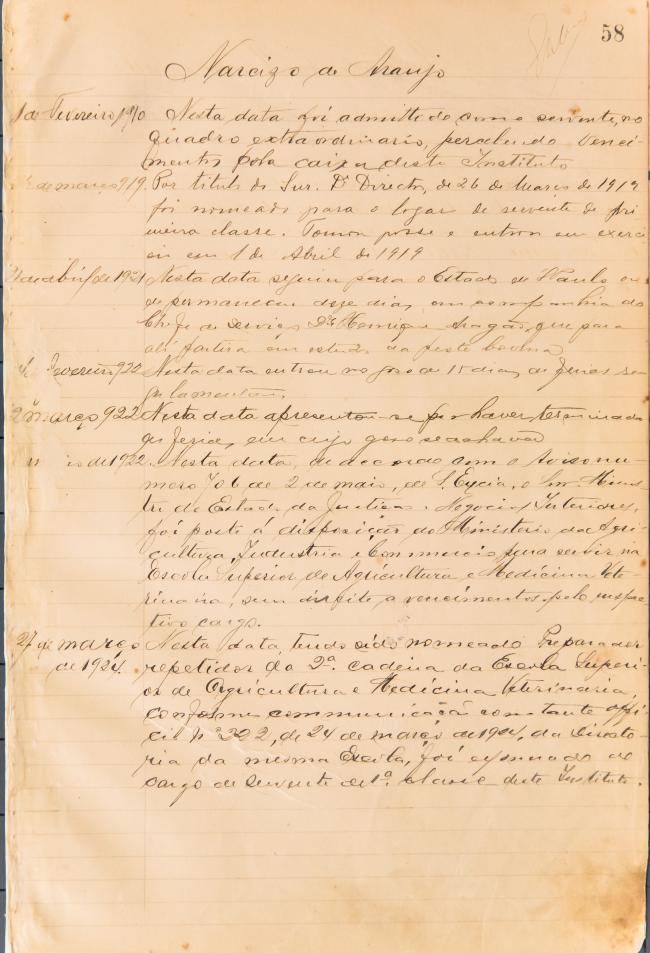 58
Narcizo de Araujo
1 de Fevereiro 910 Nesta data foi admittido como servente, no
quadro extraordinario, percebendo venci-
mentos pela caixa deste Instituto
de março 919. Por titulo do Snr. Dr. Director, de 26 de Março de 1919
foi nomeado para o logar de servente de pri-
meira classe. Tomou posse e entrou em exerci-
cio em 1 de Abril de 1919
de abril de 1921 Nesta data seguiu para o Estado de S. Paulo on-
de permaneceu doze dias, em companhia do
Chefe de Serviço Dr. Henrique Aragão, que para
ali partira em estudo da peste bovina
Fevereiro 922 Nesta data entrou no goso de 15 dias de ferias re-
gulamentares
2 março 922 Nesta data apresentou-se por haver terminado
as ferias, em cujo goso se achava
io de 1922. Nesta data, de accordo com o Aviso nu-
mero 706 de 2 de maio, de S. Excia, o Snr. Minis-
tro de Estado da Justiça e Negocios Interiores,
foi posto á disposição do Ministerio da Agri-
cultura, Industria e Commercio para servir na
Escola Superior de Agricultura e Medicina Vete-
rinaria, sem direito a vencimentos pelo respec-
tivo cargo.
27 de março Nesta data, tendo sido nomeado Preparador
de 1924. repetidor da 2ª. cadeira da Escola Superi-
or de Agricultura e Medicina Veterinaria,
conforme communicação constante offi-
cio nº 222, de 24 de março de 1924, da Directo-
ria da mesma Escola, foi exonerado do
cargo de servente de 1ª. classe deste Instituto.